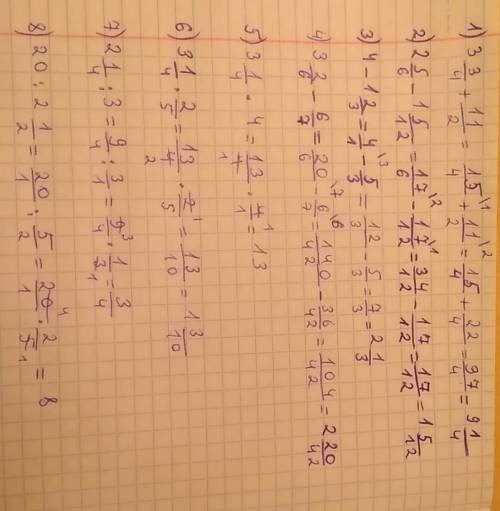 1) 3 3/4 + 11/2 = 15/4 \1 + 11/2 \2 = 15/4 + 22/4 = 37/4 = 9 1/4
2) 2 5/6 - 1 5/12 = 17/6 \2 - 17/12 \1 = 34/12 - 17/12 = 17/12 = 1 5/12
3) 4 - 1 2/3 = 4/1 \3 - 5/3 = 12/3 - 5/3 = 7/3 = 2 1/3
4) 3 2/6 - 6/7 = 20/6 \7 - 6/7 \6 = 140/42 - 36/42 = 104/42 = 2 20/42
5) 3 1/4 · 4 = 13/4 1 · 4 1/1 = 13
6) 3 1/4 · 2/5 = 13/4 2 · 2 1/5 = 13/10 = 1 3/10
7) 2 1/4 : 3 = 9/4 : 3/1 = 9 3/4 · 1/3 1 = 3/4
8) 20 : 2 1/2 = 20/1 : 5/2 = 20 4/1 · 2/5 1 = 8